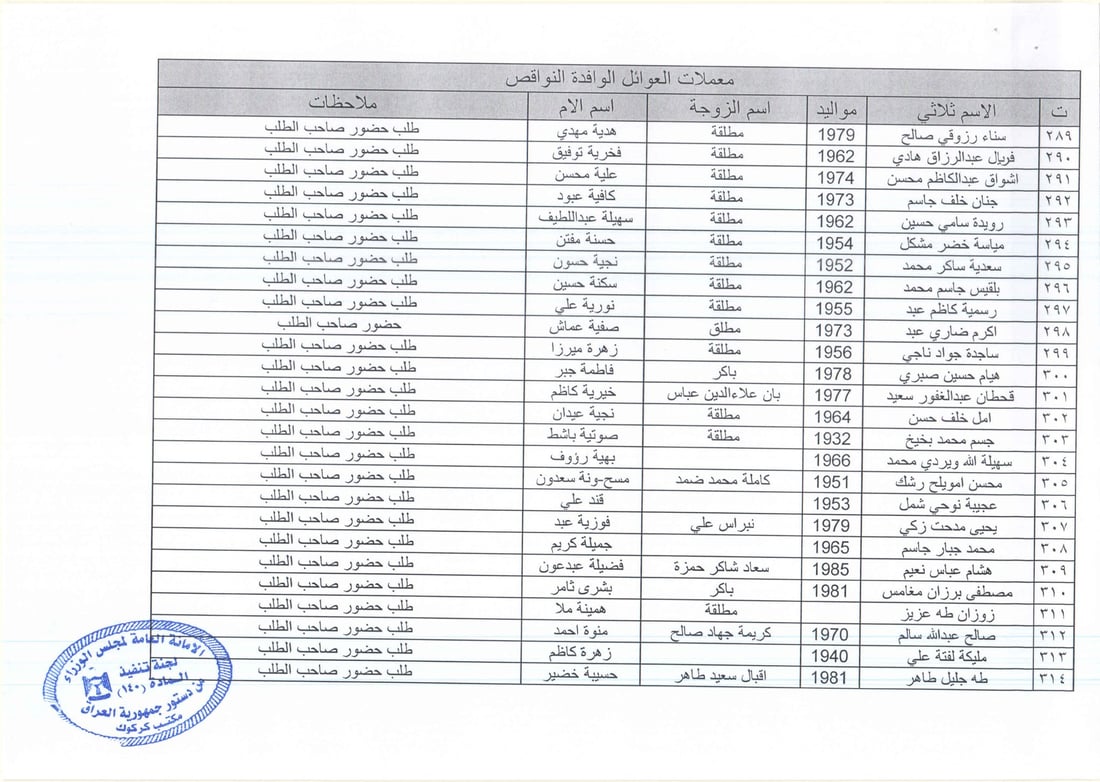 معملات العوائل الوافدة النواقص
ت الاسم ثلاثي مواليد اسم الزوجة اسم الام ملاحظات
٢٨٩ سناء رزوقي صالح 1979 مطلقة هدية مهدي طلب حضور صاحب الطلب
٢٩٠ فريال عبدالرزاق هادي 1962 مطلقة فخرية توفيق طلب حضور صاحب الطلب
٢٩١ اشواق عبدالكاظم محسن 1974 مطلقة علية محسن طلب حضور صاحب الطلب
٢٩٢ جنان خلف جاسم 1973 مطلقة كافية عبود طلب حضور صاحب الطلب
٢٩٣ رويدة سامي حسين 1962 مطلقة سهيلة عبداللطيف طلب حضور صاحب الطلب
٢٩٤ مياسة خضر مشكل 1954 مطلقة حسنة مفتن طلب حضور صاحب الطلب
٢٩٥ سعدية ساكر محمد 1952 مطلقة نجية حسون طلب حضور صاحب الطلب
٢٩٦ بلقيس جاسم محمد 1962 مطلقة سكنة حسين طلب حضور صاحب الطلب
٢٩٧ رسمية كاظم عبد 1955 مطلقة نورية علي طلب حضور صاحب الطلب
٢٩٨ اكرم ضاري عبد 1973 مطلق صفية عماش حضور صاحب الطلب
٢٩٩ ساجدة جواد ناجي 1956 مطلقة زهرة ميرزا طلب حضور صاحب الطلب
٣٠٠ هيام حسين صبري 1978 باكر فاطمة جبر طلب حضور صاحب الطلب
٣٠١ قحطان عبدالغفور سعيد 1977 بان علاءالدين عباس خيرية كاظم طلب حضور صاحب الطلب
٣٠٢ امل خلف حسن 1964 مطلقة نجية عبدان طلب حضور صاحب الطلب
٣٠٣ جسم محمد بخيخ 1932 مطلقة صوتية باشط طلب حضور صاحب الطلب
٣٠٤ سهيلة الله ويردي محمد 1966 بهية رؤوف طلب حضور صاحب الطلب
٣٠٥ محسن امويلح رشك 1951 كاملة محمد ضمد مسح-ونة سعدون طلب حضور صاحب الطلب
٣٠٦ عجيبة نوحي شمل 1953 قند علي طلب حضور صاحب الطلب
٣٠٧ يحيى مدحت زكي 1979 نبراس علي فوزية عبد طلب حضور صاحب الطلب
٣٠٨ محمد جبار جاسم 1965 جميلة كريم طلب حضور صاحب الطلب
٣٠٩ هشام عباس نعيم 1985 سعاد شاكر حمزة فضيلة عبدعون طلب حضور صاحب الطلب
٣١٠ مصطفى برزان مغامس 1981 باكر بشرى ثامر طلب حضور صاحب الطلب
٣١١ زوزان طه عزيز مطلقة همينة ملا طلب حضور صاحب الطلب
٣١٢ صالح عبدالله سالم 1970 كريمة جهاد صالح منوة احمد طلب حضور صاحب الطلب
٣١٣ مليكة لفتة علي 1940 زهرة كاظم طلب حضور صاحب الطلب
٣١٤ طه جليل طاهر 1981 اقبال سعيد طاهر حسيبة خضير طلب حضور صاحب الطلب
الامانة العامة لمجلس الوزراء
لجنة تنفيذ
المادة (١٤٠)
من دستور جمهورية العراق
مكتب كركوك